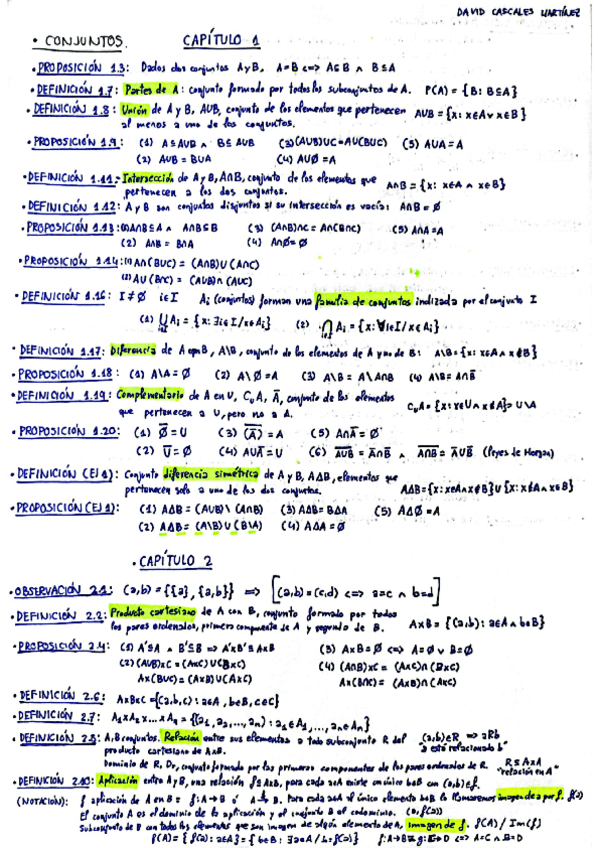 DAVID CASCALES MARTÍNEZ
• CONJUNTOS. CAPÍTULO 1
• PROPOSICIÓN 1.3: Dados dos conjuntos A y B, A=B <=> A⊆B ∧ B⊆A
• DEFINICIÓN 1.7: Partes de A: conjunto formado por todos los subconjuntos de A. P(A) = {B: B⊆A}
• DEFINICIÓN 1.8: Unión de A y B, A∪B, conjunto de los elementos que pertenecen A∪B = {x: x∈A ∨ x∈B}
al menos a uno de los conjuntos.
• PROPOSICIÓN 1.9: (1) A⊆A∪B ∧ B⊆A∪B (3) (A∪B)∪C=A∪(B∪C) (5) A∪A=A
(2) A∪B = B∪A (4) A∪Ø=A
• DEFINICIÓN 1.11: Intersección de A y B, A∩B, conjunto de los elementos que A∩B = {x: x∈A ∧ x∈B}
pertenecen a los dos conjuntos.
• DEFINICIÓN 1.12: A y B son conjuntos disjuntos si su intersección es vacía: A∩B = Ø
• PROPOSICIÓN 1.13: (1) A∩B⊆A ∧ A∩B⊆B (3) (A∩B)∩C = A∩(B∩C) (5) A∩A=A
(2) A∩B = B∩A (4) A∩Ø=Ø
• PROPOSICIÓN 1.14: (1) A∩(B∪C) = (A∩B)∪(A∩C)
(2) A∪(B∩C) = (A∪B)∩(A∪C)
• DEFINICIÓN 1.16: I≠Ø i∈I Ai (conjuntos) forman una familia de conjuntos indizada por el conjunto I
(1) ⋃ Ai = {x: ∃i∈I/x∈Ai} (2) ⋂ Ai = {x: ∀i∈I/x∈Ai}
• DEFINICIÓN 1.17: Diferencia de A con B, A\B, conjunto de los elementos de A y no de B: A\B={x: x∈A ∧ x∉B}
• PROPOSICIÓN 1.18: (1) A\A = Ø (2) A\Ø=A (3) A\B = A\A∩B (4) A\B=A∩B̅
• DEFINICIÓN 1.19: Complementario de A en U, CᵤA, A̅, conjunto de los elementos CᵤA={x: x∈U ∧ x∉A}=U\A
que pertenecen a U, pero no a A.
• PROPOSICIÓN 1.20: (1) Ø̅=U (3) (A̅)̅=A (5) A∩A̅=Ø
(2) U̅=Ø (4) A∪A̅=U (6) A̅∪̅B̅ = A̅∩B̅ ∧ A̅∩̅B̅ = A̅∪B̅ (leyes de Morgan)
• DEFINICIÓN (EJ 1): Conjunto diferencia simétrica de A y B, AΔB, elementos que AΔB={x: x∈A∧x∉B}∪{x: x∉A∧x∈B}
pertenecen solo a uno de los dos conjuntos.
• PROPOSICIÓN (EJ 1): (1) AΔB = (A∪B)\(A∩B) (3) AΔB=BΔA (5) AΔØ=A
(2) AΔB=(A\B)∪(B\A) (4) AΔA=Ø
• CAPÍTULO 2
• OBSERVACIÓN 2.1: (a,b)={{a},{a,b}} => [(a,b)=(c,d) <=> a=c ∧ b=d]
• DEFINICIÓN 2.2: Producto cartesiano de A con B, conjunto formado por todos AxB = {(a,b): a∈A ∧ b∈B}
los pares ordenados, primera componente de A y segunda de B.
• PROPOSICIÓN 2.4: (1) A'⊆A ∧ B'⊆B => A'xB'⊆AxB (3) AxB=Ø <=> A=Ø ∨ B=Ø
(2) (A∪B)xC = (AxC)∪(BxC) (4) (A∩B)xC = (AxC)∩(BxC)
Ax(B∪C) = (AxB)∪(AxC) Ax(B∩C) = (AxB)∩(AxC)
• DEFINICIÓN 2.6: AxBxC={(a,b,c): a∈A, b∈B, c∈C}
• DEFINICIÓN 2.7: A₁xA₂x...xAₙ = {(a₁,a₂,...,aₙ): a₁∈A₁,...,aₙ∈Aₙ}
• DEFINICIÓN 2.8: A, B conjuntos. Relación entre sus elementos a todo subconjunto R del (a,b)∈R => aRb
producto cartesiano de AxB. "a está relacionado b"
Dominio de R, Dr, conjunto formado por las primeras componentes de los pares ordenados de R. R⊆AxA "relación en A"
• DEFINICIÓN 2.10: Aplicación entre A y B, una relación f⊆AxB, para cada a∈A existe un único b∈B con (a,b)∈f.
(NOTACIÓN): f aplicación de A en B = f:A→B ó A→B. Para cada a∈A el único elemento b∈B lo llamaremos imagen de a por f. f(a)
El conjunto A es el dominio de la aplicación y el conjunto B el codominio. (a,f(a))
Subconjunto de B con todos los elementos que son imagen de algún elemento de A, imagen de f. f(A) / Im(f)
f(A) = {f(a): a∈A} = {b∈B: ∃a∈A / b=f(a)} f:A→B = g:C→D <=> A=C ∧ B=D